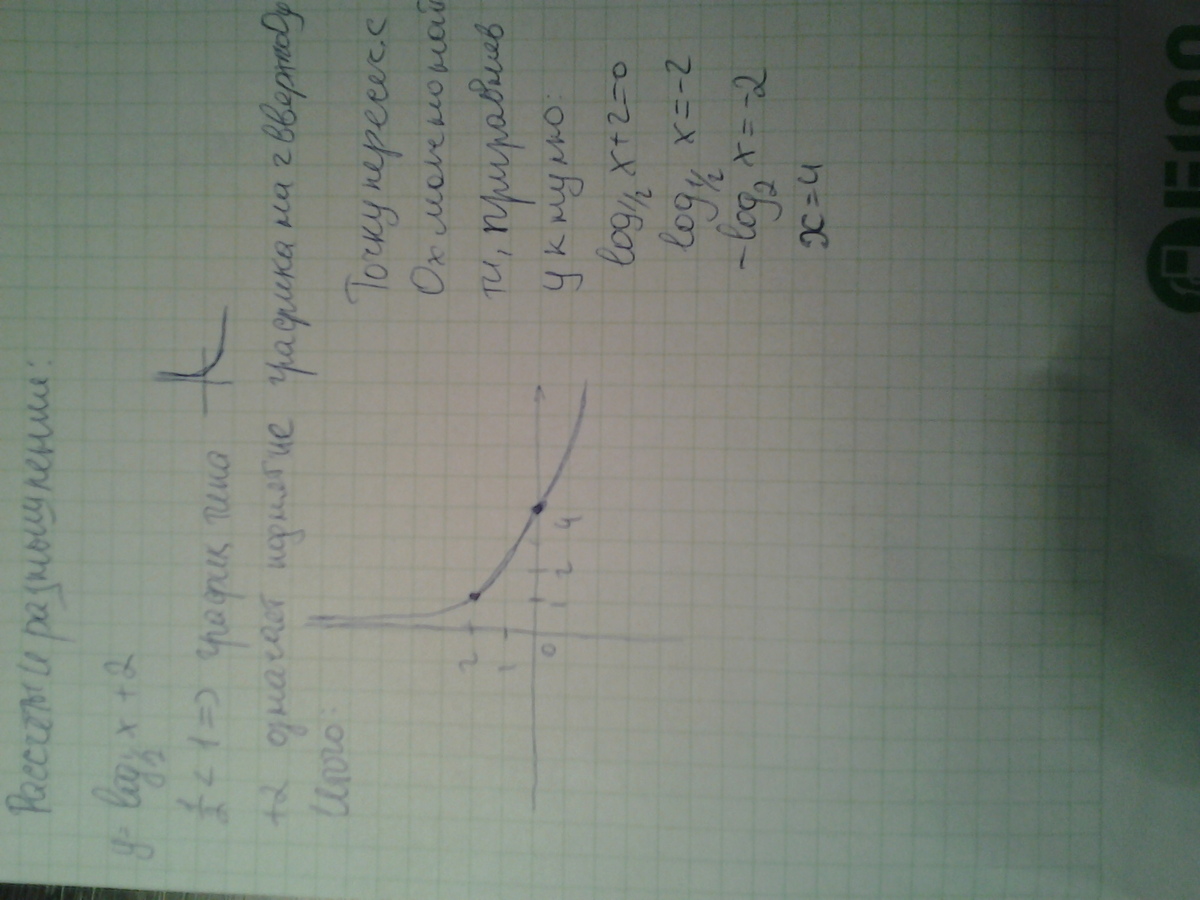 Рассматриваем размышлении:
y = log½ x + 2
½ < 1 => график типа
+2 означает поднятие графика на 2 вверх по Оу
Итого:
2
1
0
1
2
4
Точку пересеч. с
Ох можно най
ти, приравняв
у к нулю:
log½ x + 2 = 0
log½ x = -2
-log₂ x = -2
x = 4